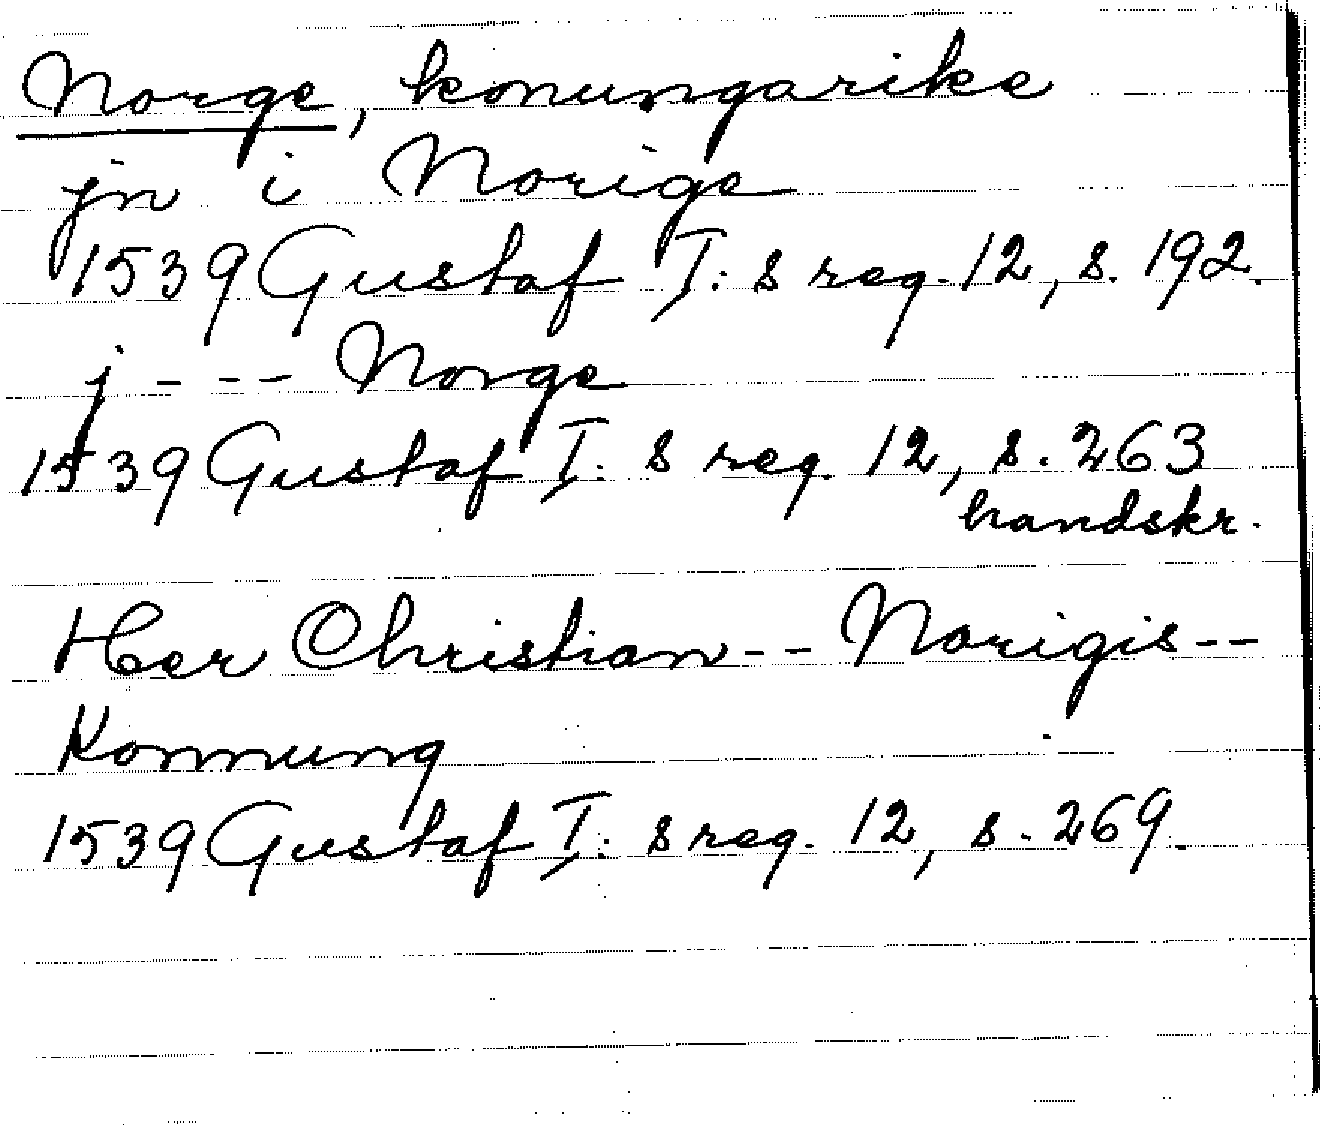 Norge, konungarike
jn i Norige
1539 Gustaf I:s reg. 12, s. 192.
j - -- Norge
1539 Gustaf I:s reg. 12, s. 263
handskr.
Her Christian -- Norigis --
Konnung
1539 Gustaf I:s reg. 12, s. 269.